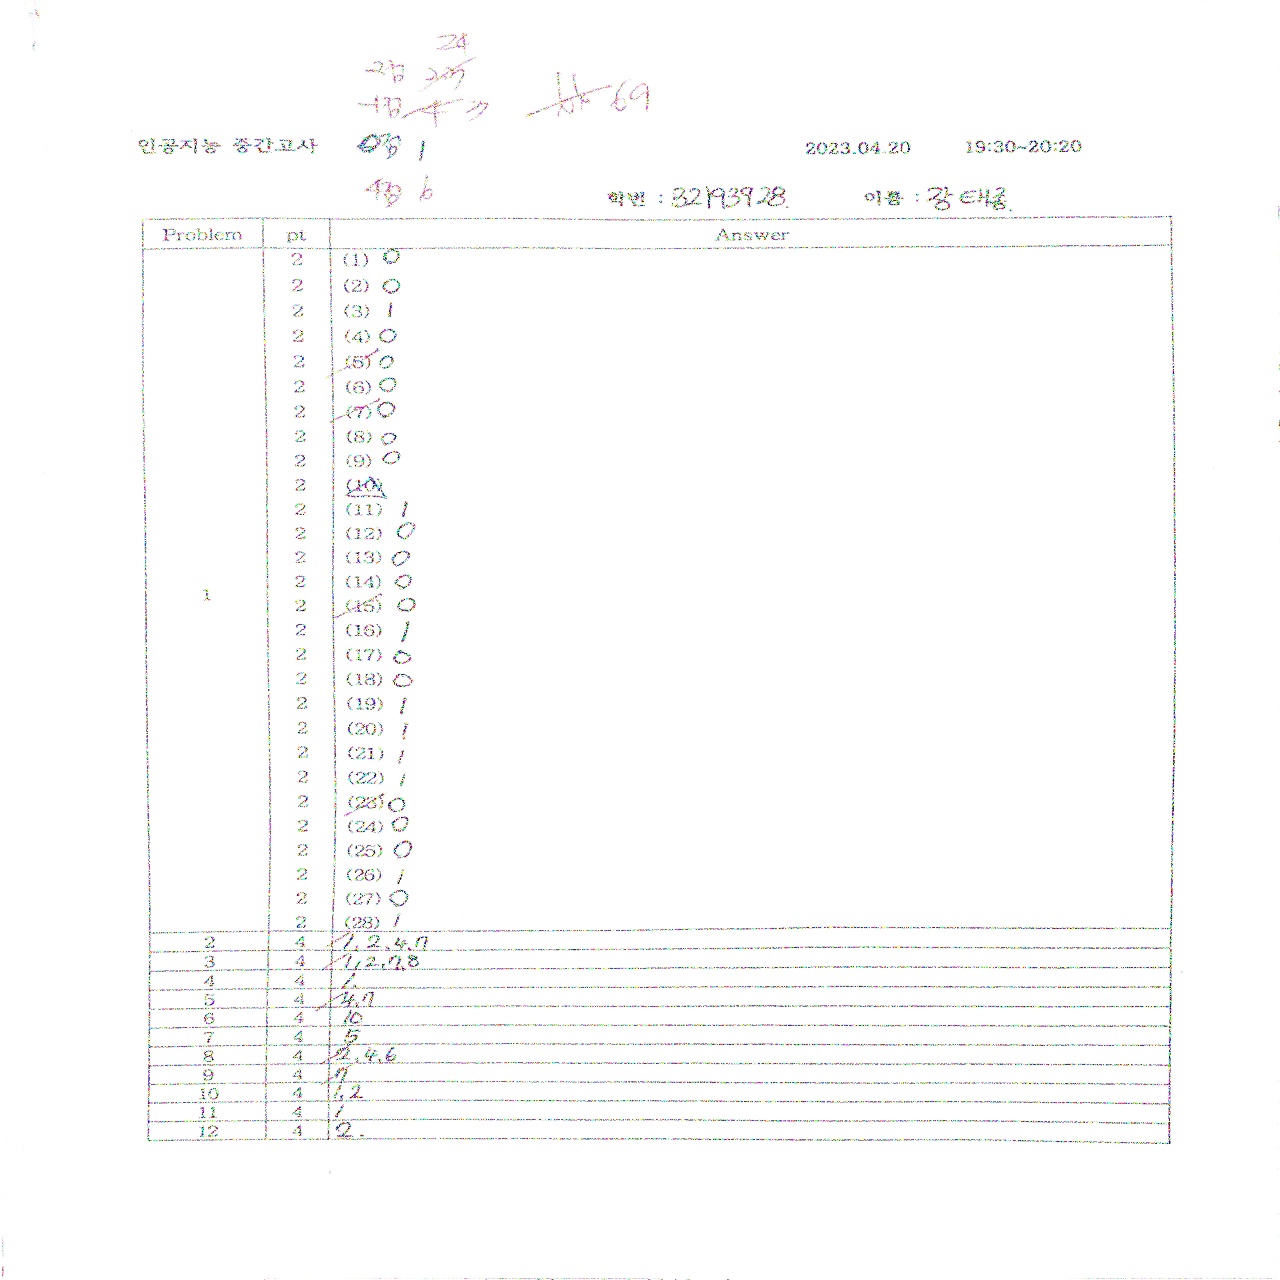 24
2점
-1점 4 3 69
0점 1
인공지능 중간고사 2023.04.20 19:30~20:20
4점 6
학번 : 32193928. 이름 : 강태종.
Problem pt Answer
2 (1) 0
2 (2) 0
2 (3) 1
2 (4) 0
2 (5) 0
2 (6) 0
2 (7) 0
2 (8) 0
2 (9) 0
2 (10)
2 (11) 1
2 (12) 0
2 (13) 0
2 (14) 0
1
2 (15) 0
2 (16) 1
2 (17) 0
2 (18) 0
2 (19) 1
2 (20) 1
2 (21) 1
2 (22) 1
2 (23) 0
2 (24) 0
2 (25) 0
2 (26) 1
2 (27) 0
2 (28) 1
2 4 1, 2, 4, 7
3 4 1, 2, 7, 8
4 4 1.
5 4 4, 7
6 4 10
7 4 5
8 4 2, 4, 6
9 4 7
10 4 1, 2
11 4 1
12 4 2.